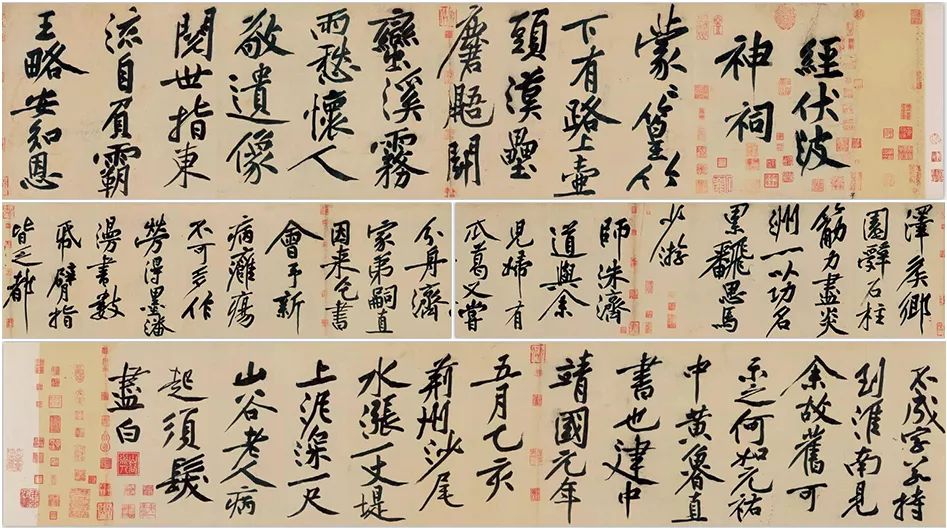 經伏波
神祠
蒙〻篁竹
下有路上壺
頭漢壘
麏鼯鬭
蠻溪霧
雨愁懷人
敬遺像
閱世指東
流自負霸
王略安知恩
澤侯鄉
園辭石柱
筋力盡炎
洲一以功名
累翻思馬
少游
師洙濟
道與余
兒婦有
瓜葛又嘗
分舟濟
家弟嗣直
因來乞書
會予新
病癰瘍
不可多作
勞得墨瀋
漫書數
紙臂指
皆乏都
不成字若持
到淮南見
余故舊可
示之何如元祐
中黃魯直
書也建中
靖國元年
五月乙亥
荊州沙尾
水漲一丈堤
上泥深一尺
山谷老人病
起須髮
盡白